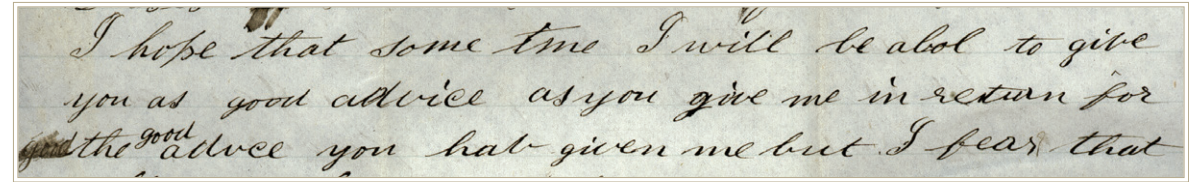 I hope that some tme I will be abol to give
you as good advice as you give me in return for
good the good advce you hab given me but I fear that